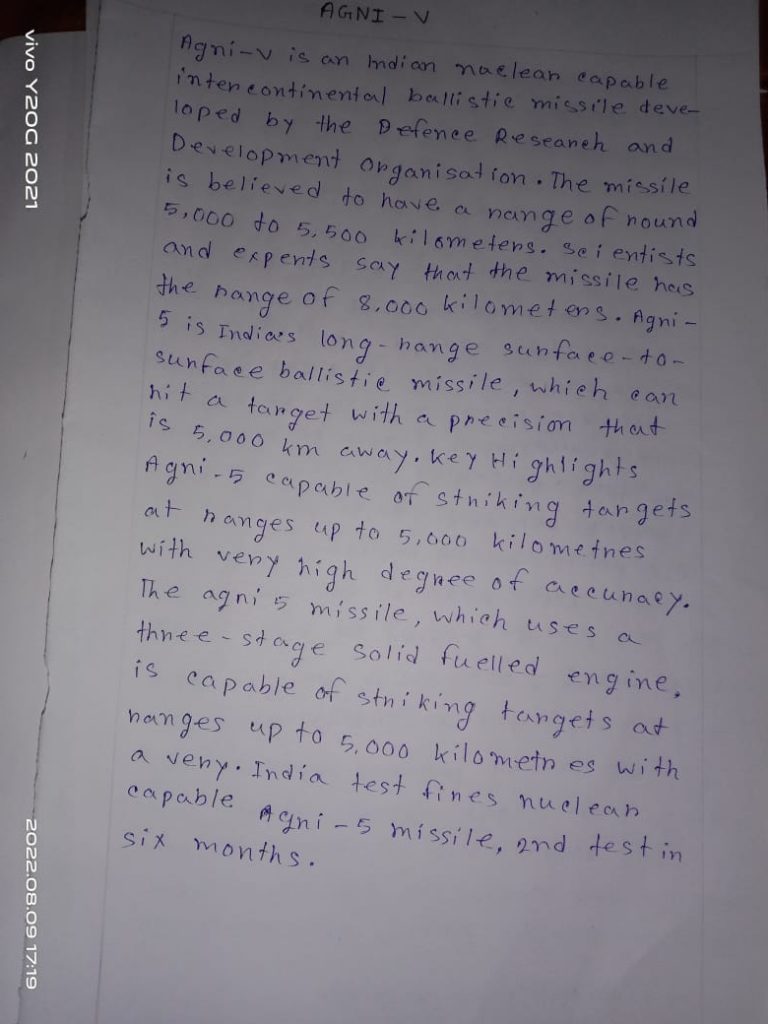 AGNI - V
Agni-v is an Indian nuclear capable
intercontinental ballistic missile deve-
loped by the Defence Research and
Development Organisation. The missile
is believed to have a range of round
5,000 to 5,500 kilometers. Scientists
and experts say that the missile has
the range of 8,000 kilometers. Agni-
5 is India's long-range surface-to-
surface ballistic missile, which can
hit a target with a precision that
is 5,000 km away. Key Highlights
Agni-5 capable of striking targets
at ranges up to 5,000 kilometres
with very high degree of accuracy.
The agni 5 missile, which uses a
three-stage solid fuelled engine,
is capable of striking targets at
ranges up to 5,000 kilometres with
a very. India test fires nuclear
capable Agni-5 missile, 2nd test in
six months.
vivo Y20G 2021
2022.08.09 17:19